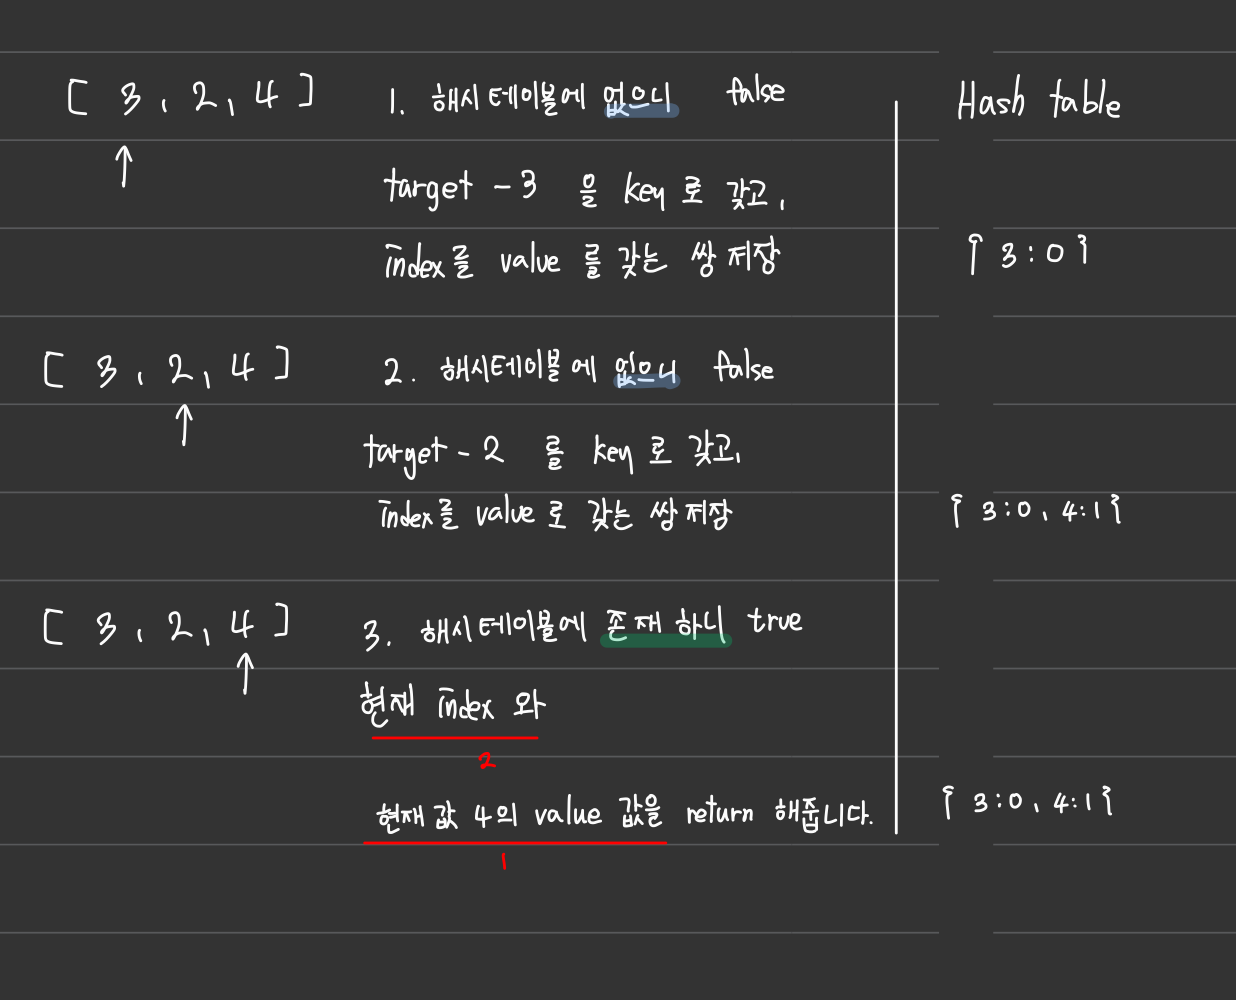 [ 3 , 2 , 4 ] 1. 해시테이블에 없으니 false
Hash table
↑
target - 3 을 key 로 갖고,
index를 value 를 갖는 쌍 저장
{ 3 : 0 }
[ 3 , 2 , 4 ] 2. 해시테이블에 없으니 false
↑
target - 2 를 key 로 갖고,
index를 value 로 갖는 쌍 저장
{ 3:0 , 4:1 }
[ 3 , 2 , 4 ] 3. 해시테이블에 존재하니 true
↑
현재 index 와
2
현재 값 4의 value 값을 return 해줍니다.
{ 3:0 , 4:1 }
1